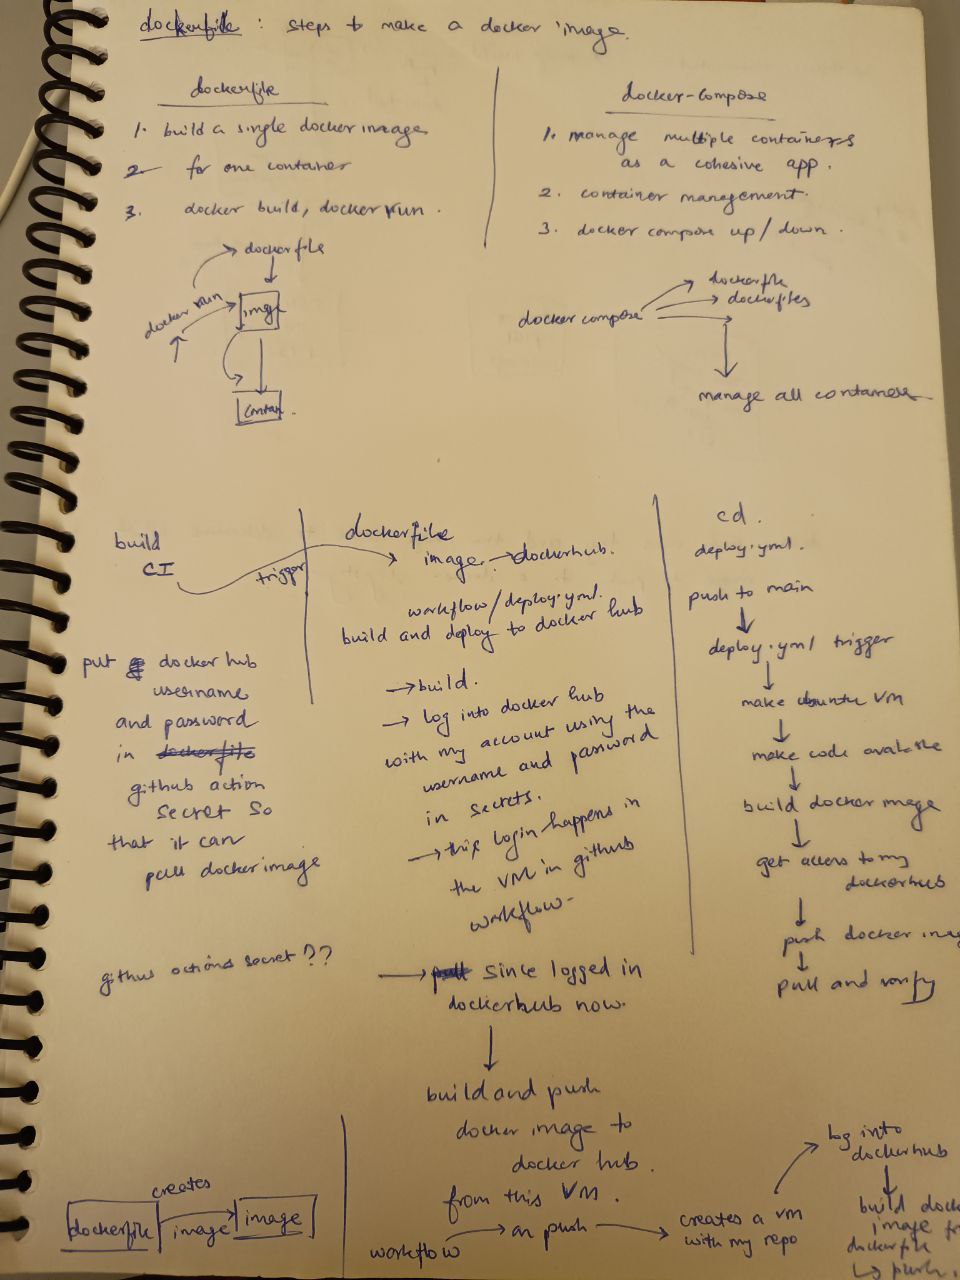 dockerfile : steps to make a docker image.
dockerfile
1. build a single docker image
2. for one container
3. docker build, docker run.
docker-compose
1. manage multiple containers
as a cohesive app.
2. container management.
3. docker compose up/down.
dockerfile
docker run
image
docker compose
dockerfile
dockerfiles
manage all containers
build
CI
trigger
dockerfile
image → dockerhub.
workflow/deploy.yml.
build and deploy to docker hub
put docker hub
username
and password
in dockerfile
github action
secret so
that it can
pull docker image
github actions secret ??
→ build.
→ log into docker hub
with my account using the
username and password
in secrets.
→ this login happens in
the VM in github
workflow-
→ pull since logged in
dockerhub now.
build and push
docker image to
docker hub.
from this VM.
cd.
deploy.yml.
push to main
deploy.yml trigger
make ubuntu VM
make code
build docker image
get access to my
dockerhub
push docker
pull and verify
creates
dockerfile
image
image
workflow
on push
creates a VM
with my repo
log into
dockerhub
build
image
dockerfile
↳ push.